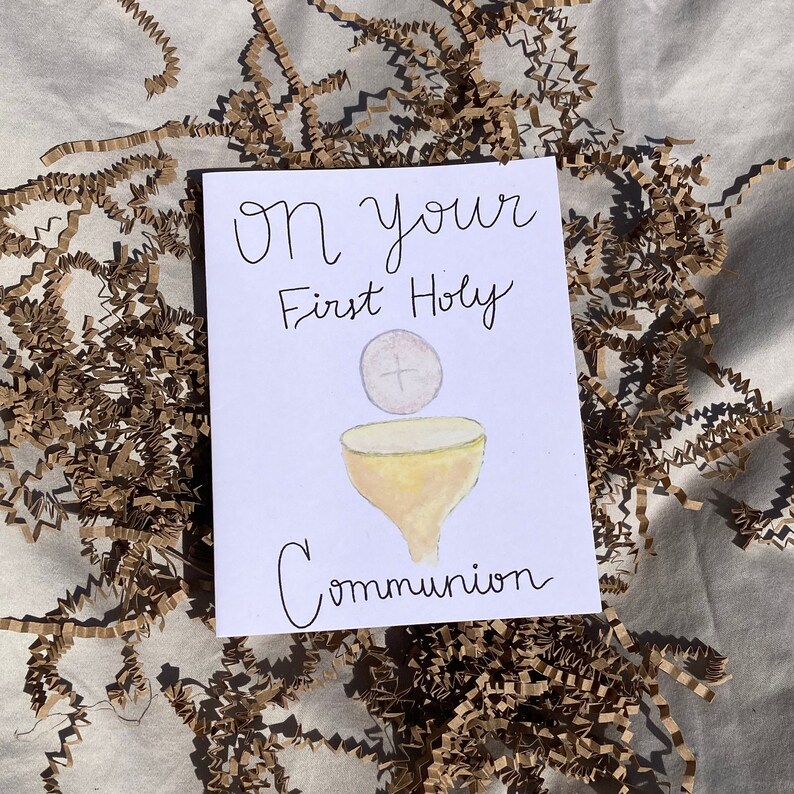 On Your
First Holy
Communion